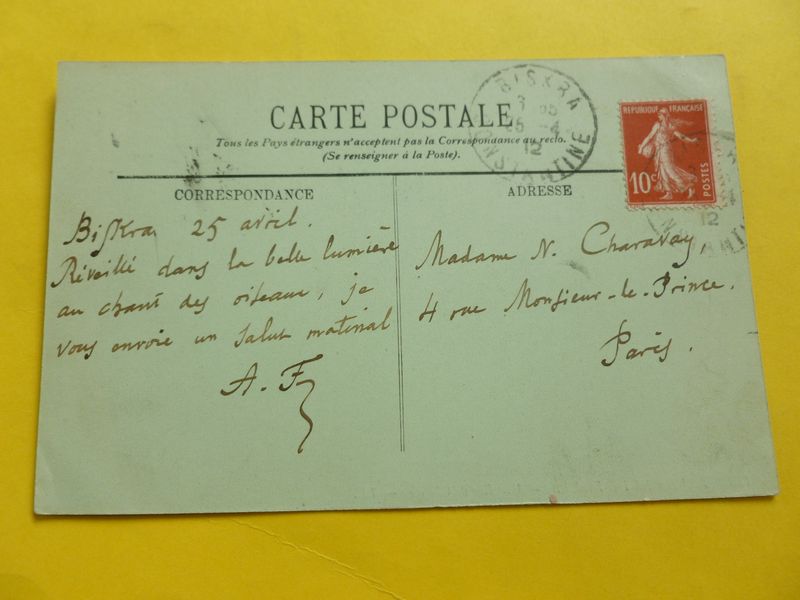 CARTE POSTALE
Tous les Pays étrangers n'acceptent pas la Correspondance au recto.
(Se renseigner à la Poste).
BISKRA
CONSTANTINE
25 -4
12
REPUBLIQUE FRANÇAISE
10c
POSTES
12
CORRESPONDANCE
Biskra 25 avril.
Réveillé dans la belle lumière
au chant des oiseaux, je
vous envoie un salut matinal
A. F.
ADRESSE
Madame N. Charavay,
4 rue Monsieur-le-Prince.
Paris.